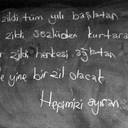 zildi tüm yılı başlatan
zildi sözlüden kurtara
zildi herkesi ağlatan
ve yine bir zil olacak
Hepimizi ayıran